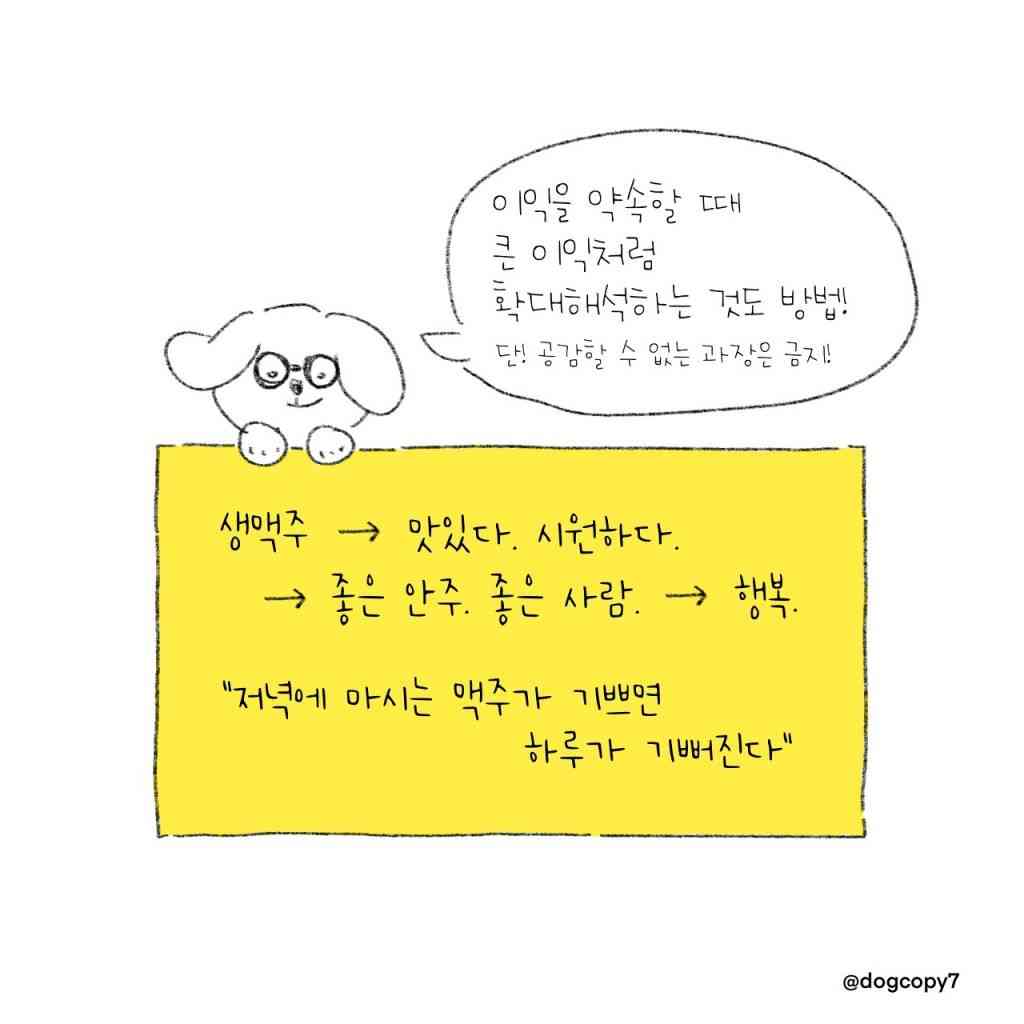 이익을 약속할 때
큰 이익처럼
확대해석하는 것도 방법!
단! 공감할 수 없는 과장은 금지!
생맥주 → 맛있다. 시원하다.
→ 좋은 안주. 좋은 사람. → 행복.
"저녁에 마시는 맥주가 기쁘면
하루가 기뻐진다"
@dogcopy7